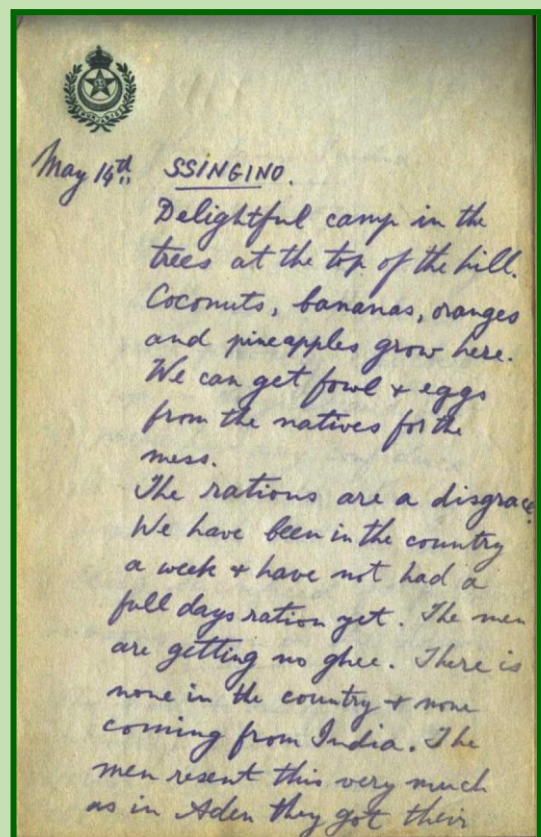 May 14th SSINGINO.
Delightful camp in the
trees at the top of the hill.
Coconuts, bananas, oranges
and pineapples grow here.
We can get fowl & eggs
from the natives for the
mess.
The rations are a disgrace.
We have been in the country
a week & have not had a
full days ration yet. The men
are getting no ghee. There is
none in the country & none
coming from India. The
men resent this very much
as in Aden they got their